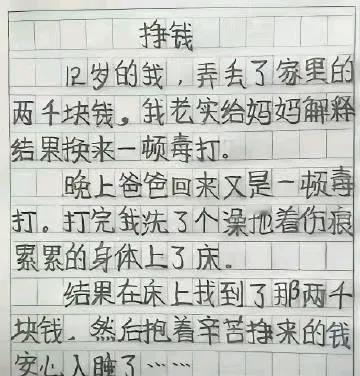 挣钱
12岁的我，弄丢了家里的
两千块钱。我老实给妈妈解释
结果换来一顿毒打。
晚上爸爸回来又是一顿毒
打。打完我洗了个澡拖着伤痕
累累的身体上了床。
结果在床上找到了那两千
块钱，然后抱着辛苦挣来的钱
安心入睡了……